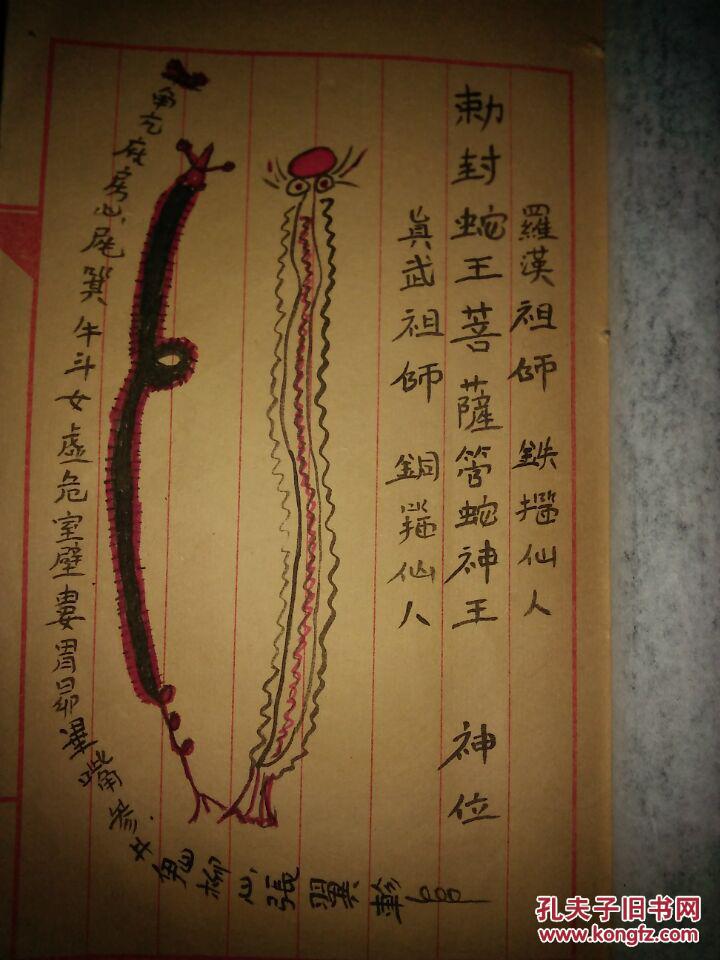 羅漢祖師 鉄摺仙人
勅封蛇王菩薩管蛇神王 神位
眞武祖師 銅摺仙人
角亢底房心尾箕牛斗女虚危室壁婁胃昴畢嘴參女鬼柳心張翼軫
孔夫子旧书网
www.kongfz.com